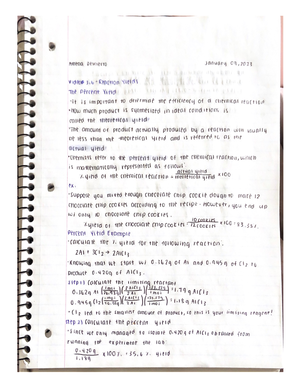 January 09, 2023
Video 3.4 - Reaction Yields
The Percent Yield
• It is important to determine the efficiency of a chemical reaction
• How much product is synthesized in ideal conditions is
called the theoretical yield!
• The amount of product actually produced by a reaction will usually
be less than the theoretical yield and is referred to as the
actual yield!
• Chemists refer to the percent yield of the chemical reaction, which
is mathematically represented as follows:
% yield of the chemical reaction = actual yield / theoretical yield x100
Ex.
• Suppose you mixed enough chocolate chip cookie dough to make 12
chocolate chip cookies according to the recipe - however, you end up
w/ only 10 chocolate chip cookies.
% yield of the chocolate chip cookies = 10 cookies / 12 cookies x100 = 83.3%.
Percent Yield Example
• Calculate the % yield for the following reaction.
2Al + 3Cl2 → 2AlCl3
• Knowing that we start w/ 0.362g of Al and 0.945g of Cl2 to
produce 0.420g of AlCl3.
Step 1) Calculate the limiting reactant
0.362g Al = 1.79g AlCl3
0.945g Cl2 = 1.18g AlCl3
• Cl2 led to the smaller amount of product, so it is your limiting reagent!
Step 2) Calculate the percent yield
• Since we only managed to isolate 0.420g of AlCl3 obtained from
running the experiment the lab:
0.420g / 1.18g x100% = 35.6% yield